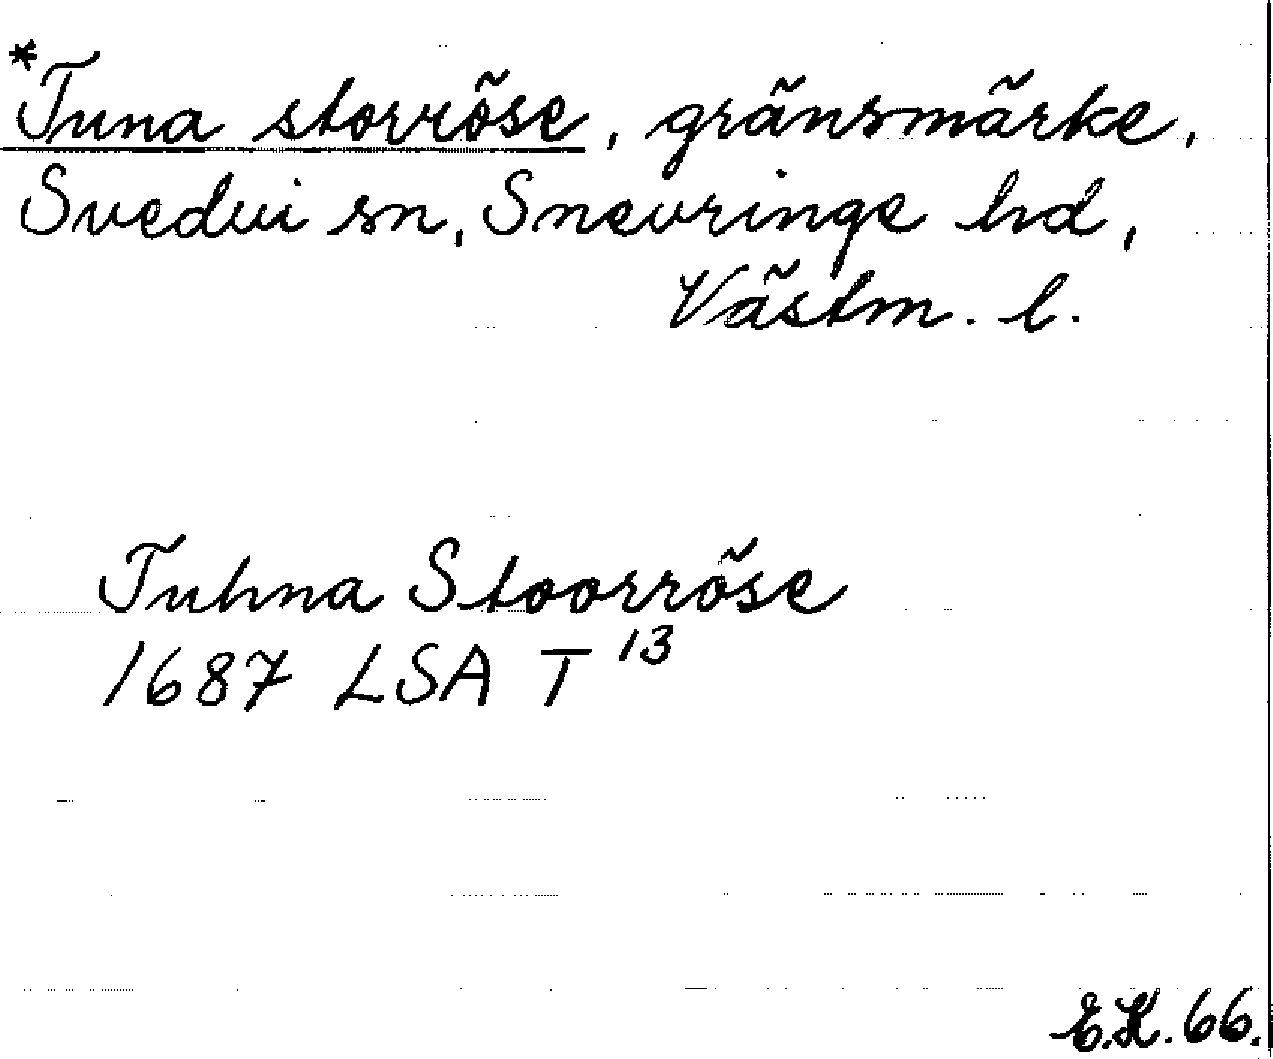 *Tuna storröse, gränsmärke,
Svedvi sn, Snevringe hd,
Västm. l.
Tuhna Stoorröse
1687 LSA T 13
E.K. 66.